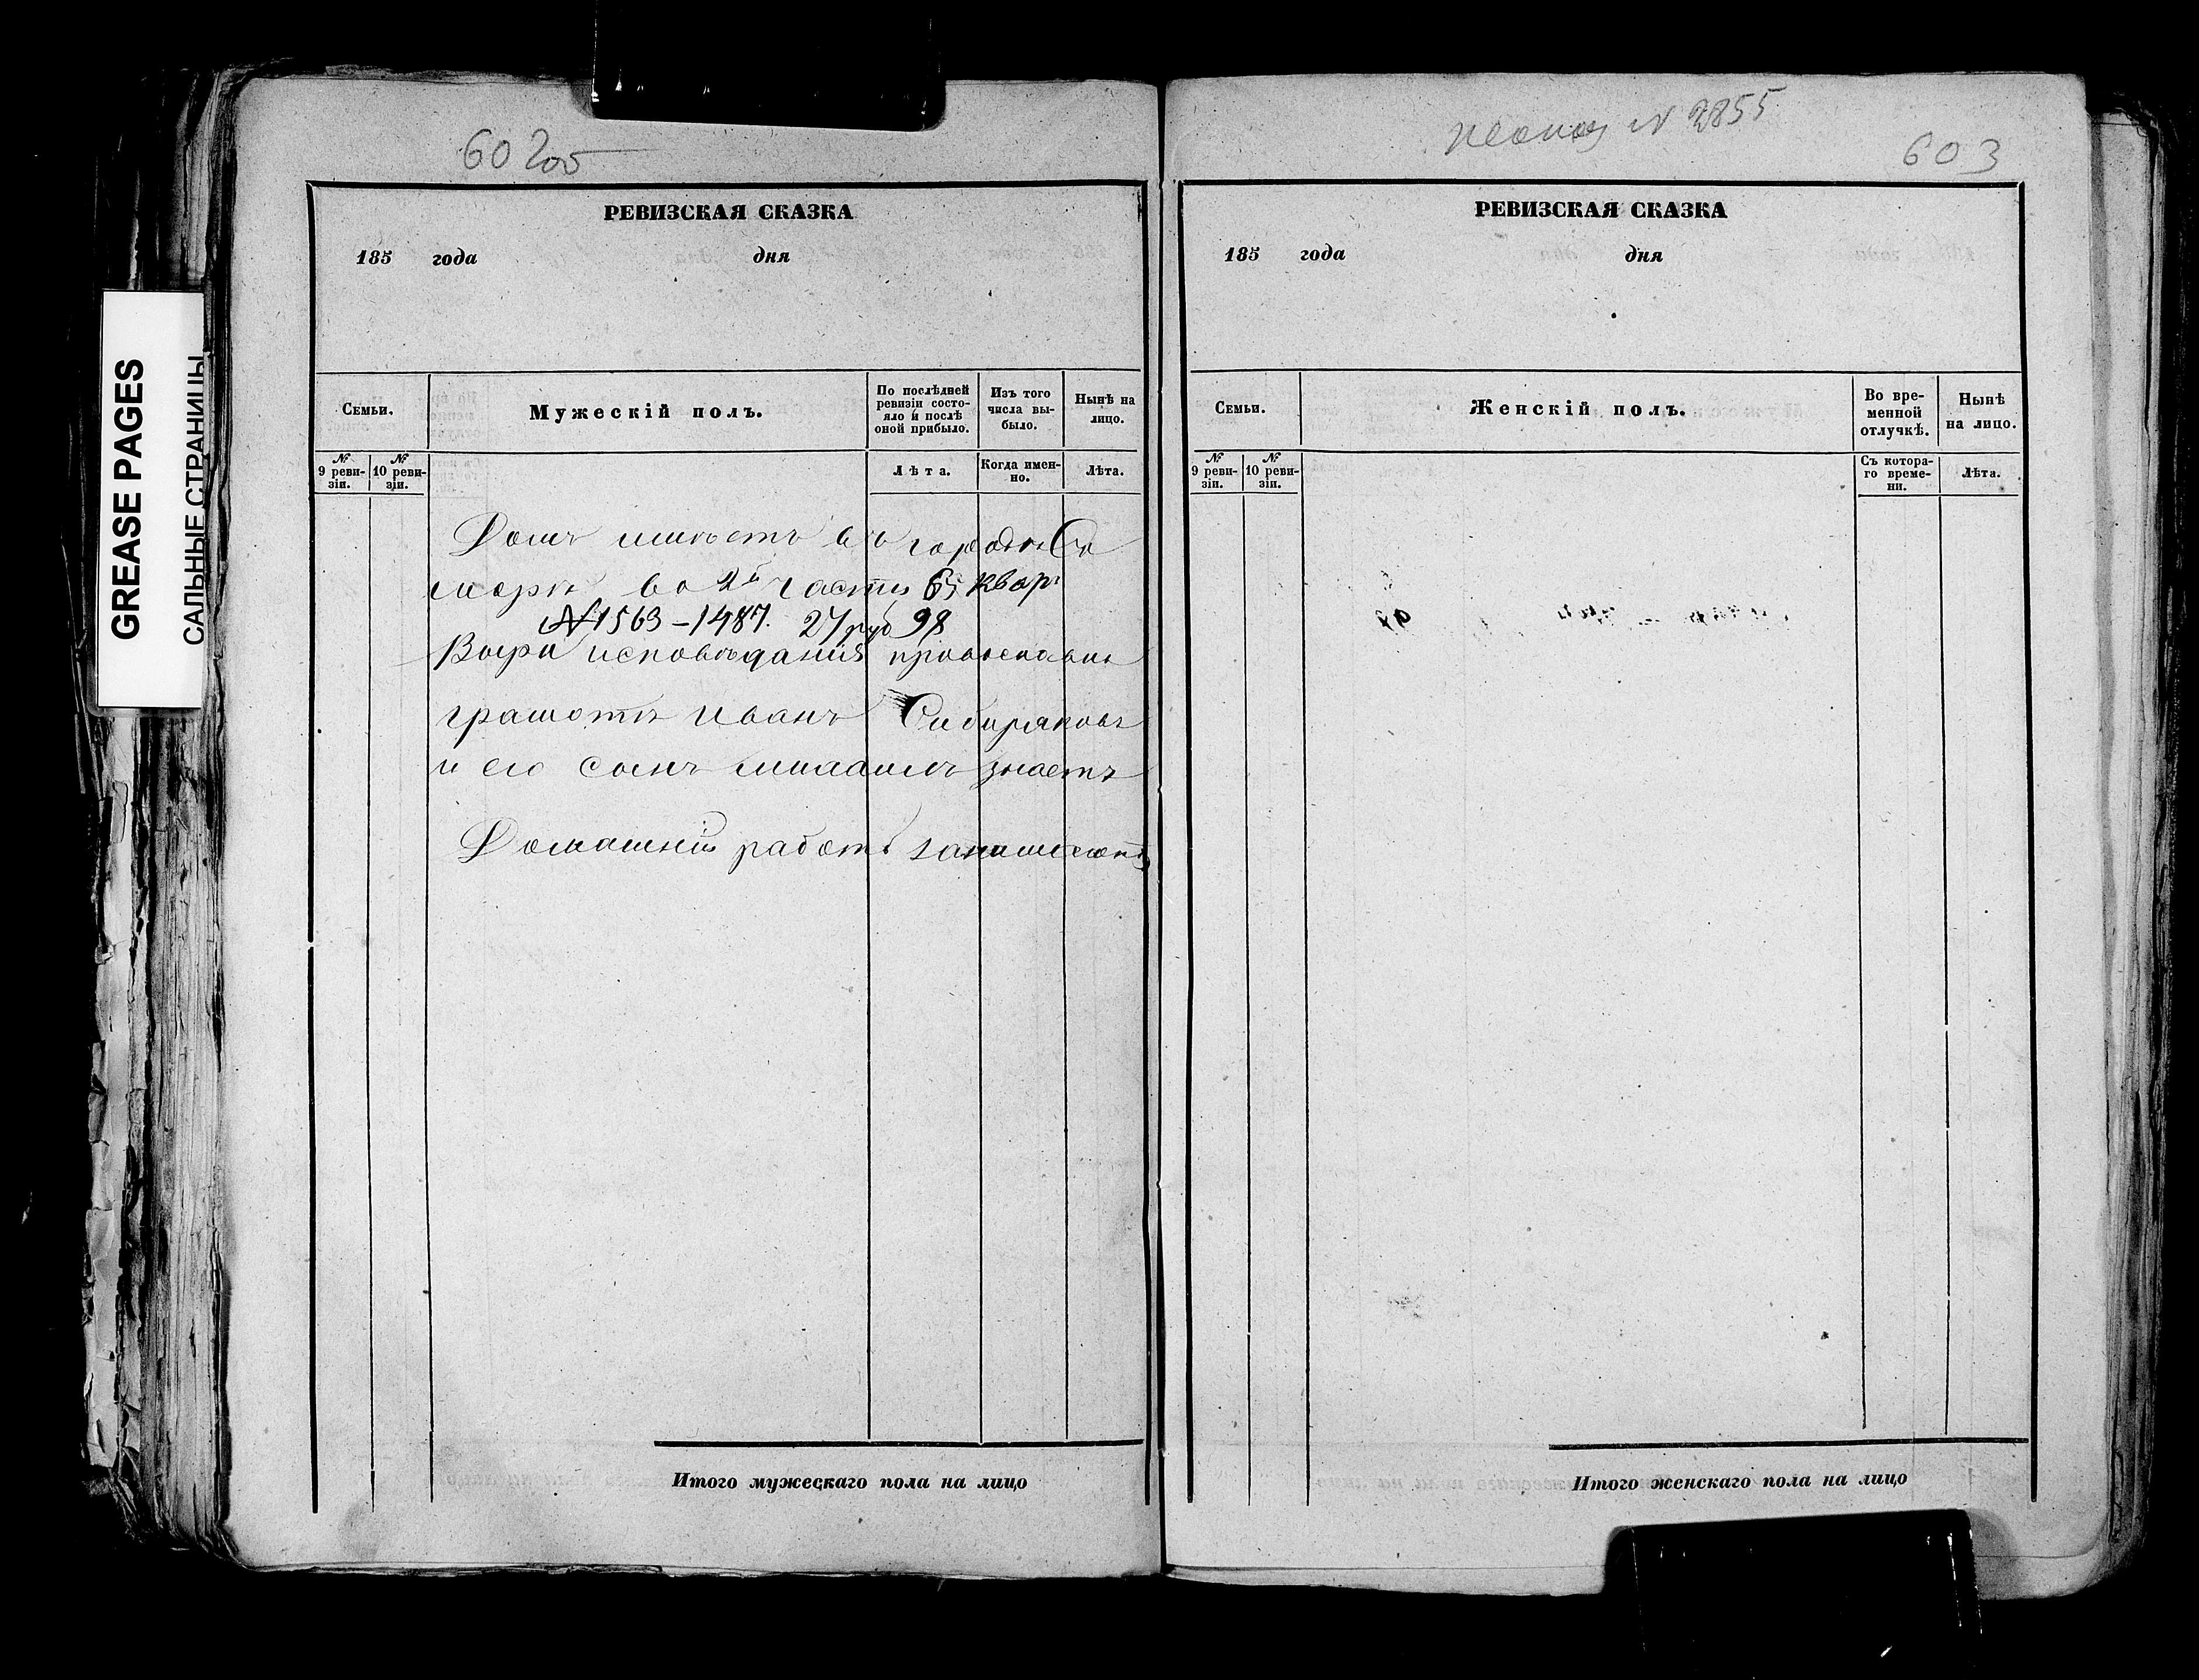 GREASE PAGES
САЛЬНЫЕ СТРАНИЦЫ
602об
РЕВИЗСКАЯ СКАЗКА
185 года дня
Семьи.
Мужескій полъ.
По послѣдней ревизіи состо-
яло и послѣ
оной прибыло.
Изъ того
числа вы-
было.
Нынѣ на
лицо.
№ 9 реви-
зіи.
№ 10 реви-
зіи.
Лѣта.
Когда имен-
но.
Лѣта.
Домъ имѣетъ въ городѣ Са
марѣ во 2й части 65 квар
№ 1563 – 1487. 27 руб 98
Вѣры исповѣданія православны
грамотѣ Иванъ Сибиряковъ
и его сынъ знаетъ
Домашній работы
Итого мужескаго пола на лицо
№ 2855
603
РЕВИЗСКАЯ СКАЗКА
185 года дня
Семьи.
Женскій полъ.
Во вре-
менной
отлучкѣ.
Нынѣ
на лицо.
№ 9 реви-
зіи.
№ 10 реви-
зіи.
Съ котора-
го време-
ни.
Лѣта.
Итого женскаго пола на лицо